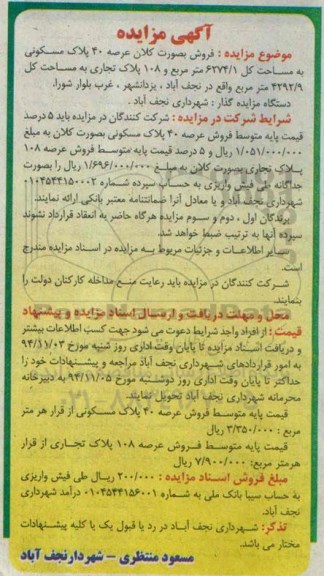 آگهی مزایده
موضوع مزایده : فروش بصورت کلان عرصه ۴۰ پلاک مسکونی
به مساحت کل ۶۲۷۴/۱ متر مربع و ۱۰۸ پلاک تجاری به مساحت کل
۴۲۹۲/۹ متر مربع واقع در نجف آباد ، یزدانشهر ، غرب بلوار شورا.
دستگاه مزایده گذار : شهرداری نجف آباد .
شرایط شرکت در مزایده : شرکت کنندگان در مزایده باید ۵ درصد
قیمت پایه متوسط فروش عرصه ۴۰ پلاک مسکونی بصورت کلان به مبلغ
۱/۰۵۱/۰۰۰/۰۰۰ ریال و ۵ درصد قیمت پایه متوسط فروش عرصه ۱۰۸
پلاک تجاری بصورت کلان به مبلغ ۱/۶۹۶/۰۰۰/۰۰۰ ریال را بصورت
جداگانه طی فیش واریزی به حساب سپرده شماره ۰۱۰۴۵۴۴۱۵۰۰۰۲
شهرداری نجف آباد و یا معادل آنرا ضمانتنامه معتبر بانکی ارائه نمایند.
برندگان اول ، دوم و سوم مزایده هرگاه حاضر به انعقاد قرارداد نشوند
سپرده آنها به ترتیب ضبط خواهد شد.
سایر اطلاعات و جزئیات مربوط به مزایده در اسناد مزایده مندرج
است.
شرکت کنندگان در مزایده باید رعایت منع مداخله کارکنان دولت را
بنمایند.
محل و مهلت دریافت و ارسال اسناد مزایده و پیشنهاد
قیمت : از افراد واجد شرایط دعوت می شود جهت کسب اطلاعات بیشتر
و دریافت اسناد مزایده تا پایان وقت اداری روز شنبه مورخ ۹۴/۱۱/۰۳
به امور قراردادهای شهرداری نجف آباد مراجعه و پیشنهادات خود را
حداکثر تا پایان وقت اداری روز دوشنبه مورخ ۹۴/۱۱/۰۵ به دبیرخانه
محرمانه شهرداری نجف آباد تحویل نمایند.
قیمت پایه متوسط فروش عرصه ۴۰ پلاک مسکونی از قرار هر متر
مربع : ۳/۳۵۰/۰۰۰ ریال
قیمت پایه متوسط فروش عرصه ۱۰۸ پلاک تجاری از قرار
هرمتر مربع: ۷/۹۰۰/۰۰۰ ریال
مبلغ فروش اسناد مزایده : ۲۰۰/۰۰۰ ریال طی فیش واریزی
به حساب سیبا بانک ملی به شماره ۰۱۰۴۵۴۴۱۵۶۰۰۱ درآمد شهرداری
نجف آباد.
تذکر: شهرداری نجف آباد در رد یا قبول یک یا کلیه پیشنهادات
مختار می باشد.
مسعود منتظری – شهردار نجف آباد